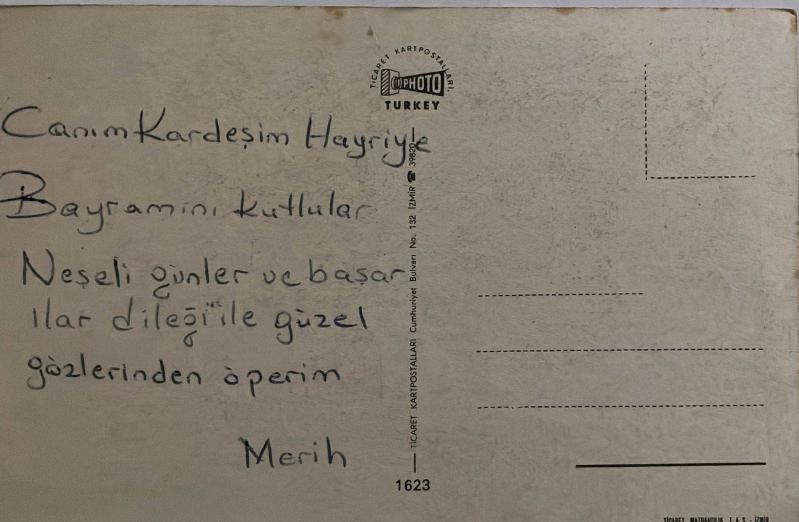 TİCARET KARTPOSTALLARI
PHOTO
TURKEY
Canım Kardeşim Hayriyle
Bayramını kutlular
Neşeli günler ve başar
ılar dileği ile güzel
gözlerinden öperim
Merih
TİCARET KARTPOSTALLARI Cumhuriyet Bulvarı No. 132 İZMİR ☎ 39820
1623
TİCARET MATBAACILIK T.A.Ş. - İZMİR